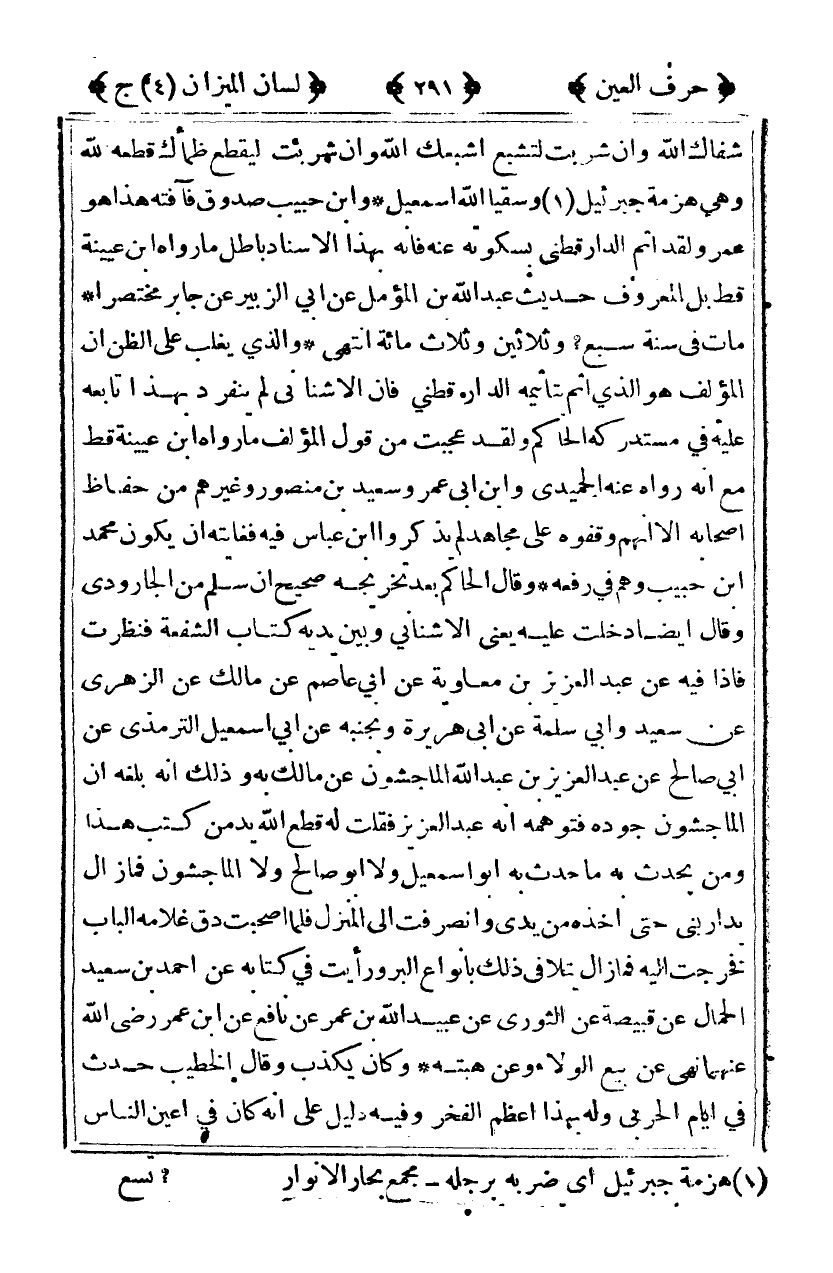 ﴿ حرف العين ﴾ ﴿ ٢٩١ ﴾ ﴿ لسان الميزان (٤) ج ﴾
شفاك الله وان شربت لتشبع اشبعك الله وان شربت ليقطع ظمأك قطعه لله
وهي هزمة جبرئيل (١) وسقيا الله اسمعيل * وابن حبيب صدوق فآفته هذا هو
عمر ولقد اثم الدار قطني بسكوته عنه فانه بهذا الاسناد باطل مارواه ابن عيينة
قط بل المعروف حديث عبد الله بن المؤمل عن ابي الزبير عن جابر مختصرا *
مات فى سنة سبع ? وثلاثين وثلاث مائة انتهى * والذي يغلب على الظن ان
المؤلف هو الذي اثم بتأثيمه الدار قطني فان الاشنا نى لم ينفرد بهذا تابعه
عليه في مستدركه الحاكم ولقد عجبت من قول المؤلف مارواه ابن عيينة قط
مع انه رواه عنه الحميدى وابن ابى عمر وسعيد بن منصور وغيرهم من حفاظ
اصحابه الا انهم وقفوه على مجاهد لم يذكروا ابن عباس فيه فغايته ان يكون محمد
ابن حبيب وهم في رفعه * وقال الحاكم بعد تخريجه صحيح ان سلم من الجارودى
وقال ايضا دخلت عليه يعنى الاشناني وبين يديه كتاب الشفعة فنظرت
فاذا فيه عن عبد العزيز بن معاوية عن ابي عاصم عن مالك عن الزهرى
عن سعيد وابي سلمة عن ابى هريرة وبجنبه عن ابي اسمعيل الترمذى عن
ابي صالح عن عبد العزيز بن عبد الله الماجشون عن مالك به وذلك انه بلغه ان
الماجشون جوده فتوهمه انه عبد العزيز فقلت له قطع الله يد من كتب هذا
ومن يحدث به ماحدث به ابو اسمعيل ولا ابو صالح ولا الماجشون فما زال
يدارينى حتى اخذه من يدى وانصرفت الى المنزل فلما اصبحت دق غلامه الباب
فخرجت اليه فمازال يتلافى ذلك بأنواع البر ورأيت في كتابه عن احمد بن سعيد
الحمال عن قبيصة عن الثورى عن عبيد الله بن عمر عن نافع عن ابن عمر رضى الله
عنهما نهى عن بيع الولاء وعن هبته * وكان يكذب وقال الخطيب حدث
في ايام الحربى وله بهذا اعظم الفخر وفيه دليل على انه كان في اعين الناس
(١) هزمة جبرئيل اى ضربه برجله ـ مجمع بحار الانوار ? تسع